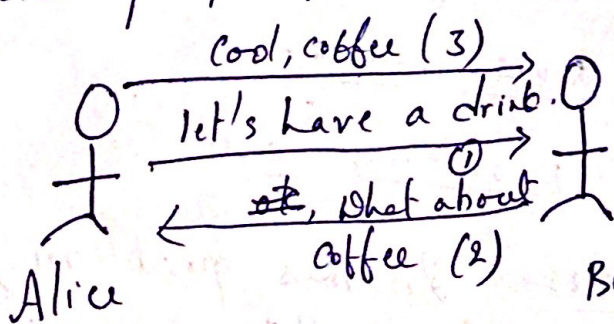 cool, coffee (3)
let's have a drink.
①
what about
coffee (2)
Alice
B